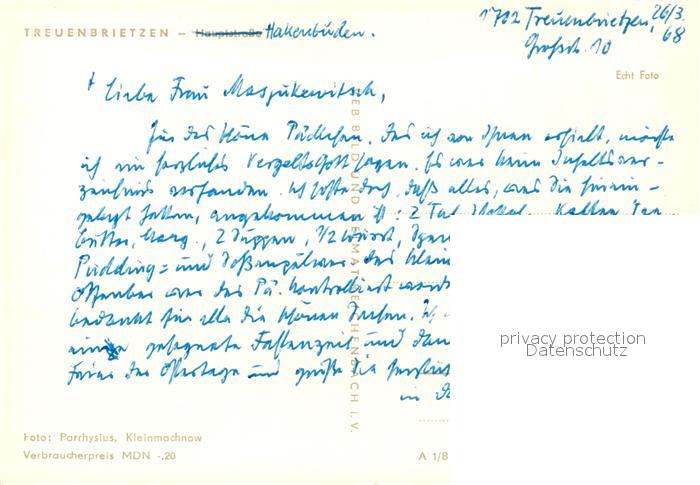 TREUENBRIETZEN – Hauptstraße Hakenbuden.
1702 Treuenbrietzen, 26/3. 68
Großstr. 10
Echt Foto
† Liebe Frau Maszukewitsch,
Für das schöne Päckchen, das ich von Ihnen erhielt, möchte
ich ein herzliches Vergelts Gott sagen. Es war kein Inhaltsver-
zeichnis vorhanden. Ich hoffe doch, daß alles, was Sie hinein-
gelegt hatten, angekommen ist: 2 Taf. Schokol., Kaffee, Tee
butter, Marg., 2 Suppen, 1/2 Wurst,
Pudding- und Soßenpulver. Das
Offenbar war das Pä. kontrolliert
bedankt für alle die schönen Sachen. Ich
eine gesegnete Fastenzeit und dann
Feier der Ostertage und grüße Sie herzlich
in
VEB BILD UND HEIMAT REICHENBACH I. V.
privacy protection
Datenschutz
Foto: Parrhysius, Kleinmachnow
Verbraucherpreis MDN -,20
A 1/B